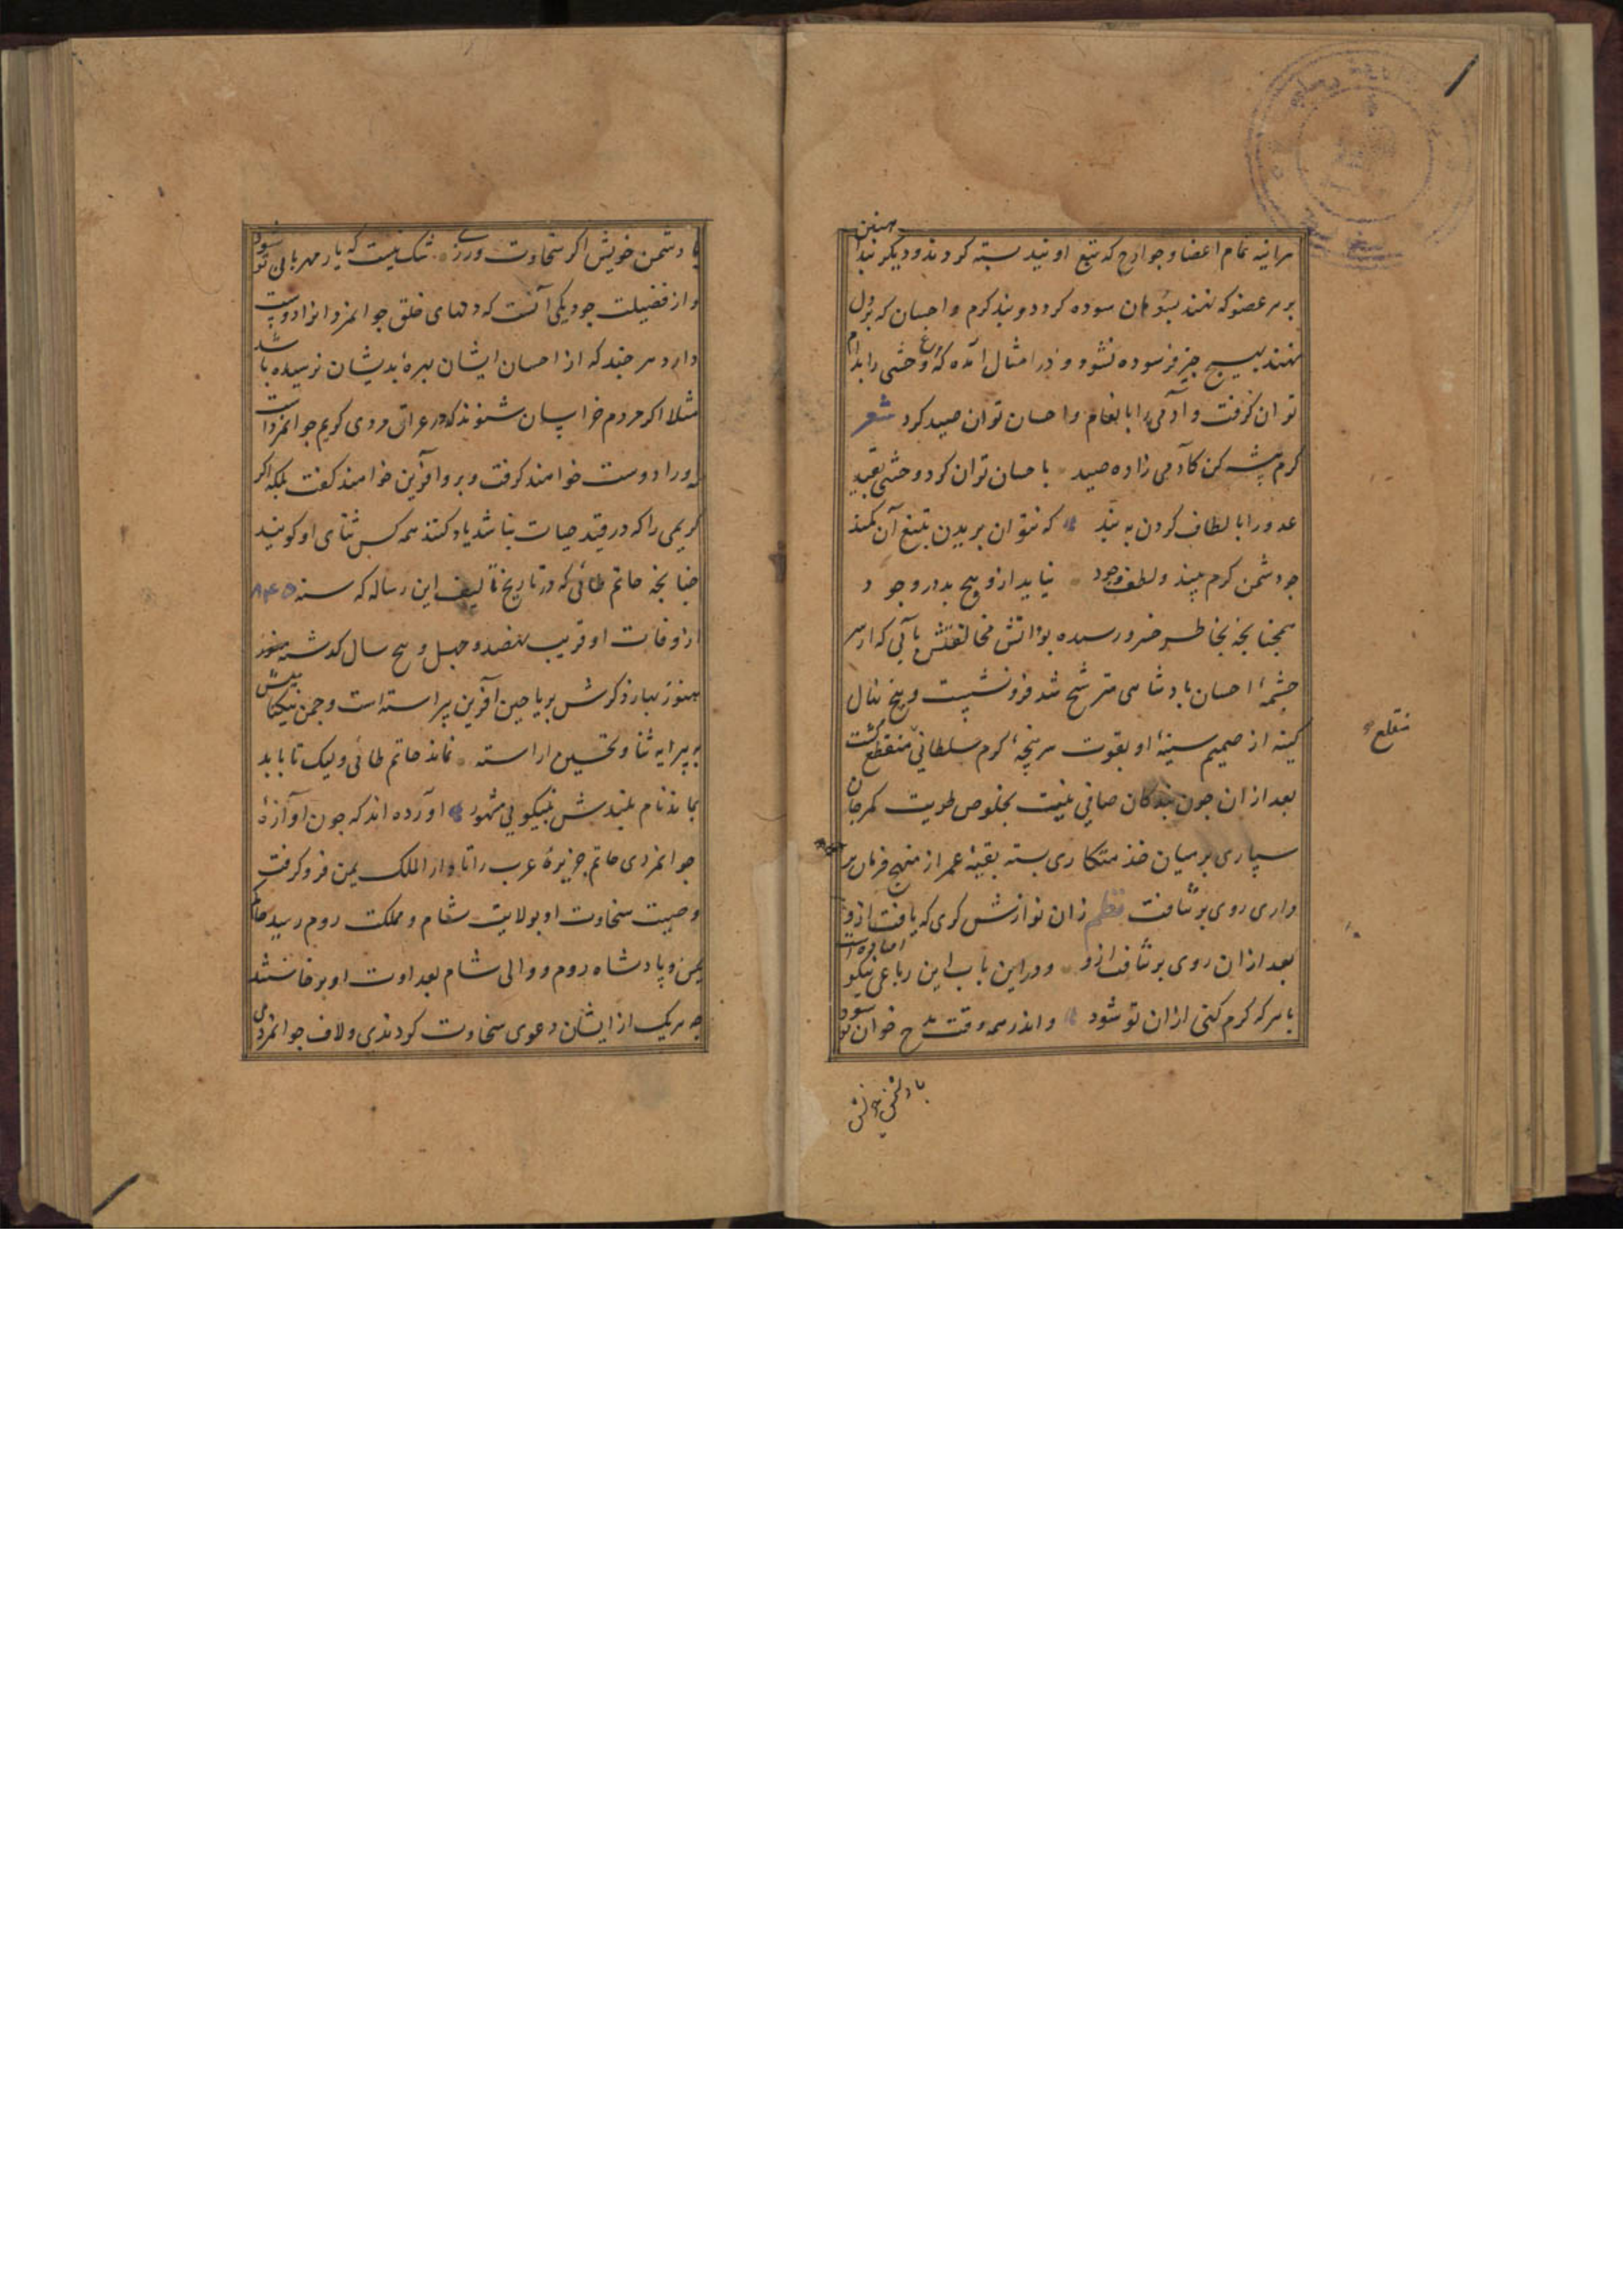 هرآینه تمام اعضا و جوارح که تبع اویند بسته کردند و دیگر بند آهنین
بر هر عضو که نهند بسوهان سوده کردد و بند کرم و احسان که بر دل
نهند بهیچ چیز فرسوده نشود و در امثال آمده که مرغ وحشی را بدام
توان کرفت و آدمی را بانعام و احسان توان صید کرد شعر
کرم پیشه کن کآدمی زاده صید باحسان توان کرد و وحشی بقید
عدو را بالطاف کردن به بند که نتوان بریدن بتیغ آن کمند
چو دشمن کرم بیند و لطف و جود نیاید ازو هیچ بد در وجود
همچنانچه بخاطر خسرو رسیده بود آتش مخالفتش بآبی که از سر
چشمهٔ احسان پادشاهی مترشح شد فرو نشست و بیخ نهال
کینه از صمیم سینهٔ او بقوت سرپنجهٔ کرم سلطانی منقطع کشت
منقلع
بعد از ان چون بندکان صافی نیت بخلوص طویت کمر جان
سپاری بر میان خدمتکاری بسته بقیهٔ عمر از منهج فرمان بر
داری روی بر نتافت نظم زان نوازش کری که یافت ازو
بعد از ان روی بر نتافت ازو و در این باب این رباعی نیکو افتاده است
با هر که کرم کنی از ان تو شود و اندر همه وقت مدح خوان تو شود
با دشمن خویش
با دشمن خویش اکر سخاوت ورزی شک نیست که یار مهربان تو شود
و از فضیلت جود یکی آنست که دلهای خلق جوانمردانرا دوست
دارد هر چند که از احسان ایشان بهرهٔ بدیشان نرسیده باشد
مثلا اکر مردم خراسان شنوند که در عراق مردی کریم جوانمرد است
او را دوست خواهند کرفت و برو آفرین خواهند کفت بلکه اکر
کریمی را که در قید حیات نباشد یاد کنند همه کس ثنای او کویند
چنانچه حاتم طائی که در تاریخ تالیف این رساله که سنه
از وفات او قریب نهصد و چهل و پنج سال کذشته هنوز
هنوز بهار ذکرش بریاحین آفرین پیراسته است و چمن نیکنامیش
به پیرایه ثنا و تحسین اراسته نماند حاتم طائی ولیک تا بابد
بماند نام بلندش بنیکویی مشهور آورده اند که چون آوازهٔ
جوانمردی حاتم جزیرهٔ عرب را تا دار الملک یمن فرو کرفت
و صیت سخاوت او بولایت شام و مملکت روم رسید حاکم
یمن و پادشاه روم و والی شام بعداوت او برخاستند
چه هر یک از ایشان دعوی سخاوت کردندی و لاف جوانمردی